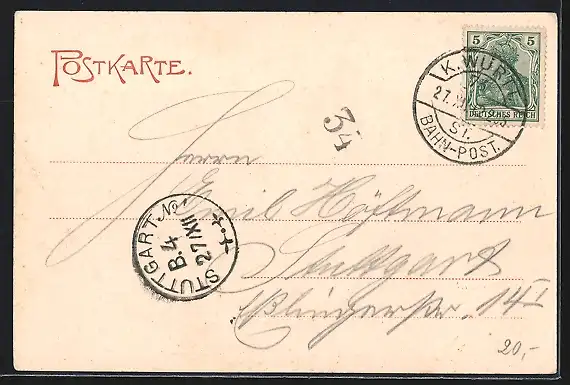 POSTKARTE.
5 5
DEUTSCHES REICH
K. WÜRTT.
27. XII
ST.
BAHN-POST.
34
Herrn
Emil Hoffmann
Stuttgart
Eßlingerstr. 14 I
STUTTGART. No 1
B.4
27/XII
20,-